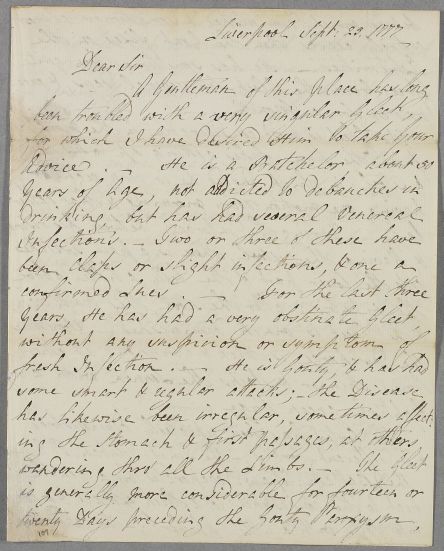 Liverpool Sept: 23. 1777
Dear Sir
A Gentleman of this place has long
been troubled with a very singular Gleet,
for which I have desired Him to take your
Advice. — He is a Batchelor about 50
years of Age, not addicted to debauches in
Drinking, but has had several Venereal
Infections. — Two or three of these have
been Claps or slight infections, & one a
confirmed Lues. — For the last three
Years, He has had a very obstinate Gleet,
without any suspicion or symptom of
fresh Infection. — He is Gouty & has had
some smart & regular attacks; — the Disease
has likewise been irregular, sometimes affect-
ing the Stomach & first passages, at others
wandering thro' all the Limbs. — The Gleet
is generally more considerable for fourteen or
twenty Days preceding the Gouty Paroxysm,